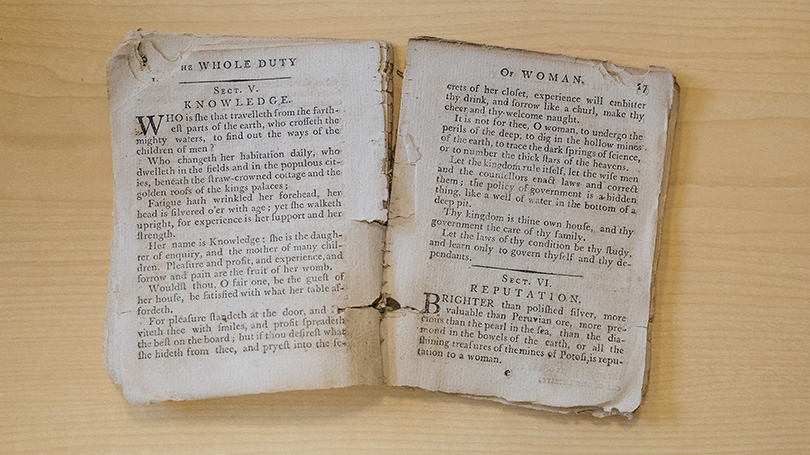 HE WHOLE DUTY
SECT. V.
KNOWLEDGE.
WHO is ſhe that travelleth from the farth-
eſt parts of the earth, who croſſeth the
mighty waters, to find out the ways of the
children of men?
Who changeth her habitation daily, who
dwelleth in the fields and in the populous cit-
ies, beneath the ſtraw-crowned cottage and the
golden roofs of the kings palaces;
Fatigue hath wrinkled her forehead, her
head is ſilvered o'er with age; yet ſhe walketh
upright, for experience is her ſupport and her
ſtrength.
Her name is Knowledge: ſhe is the daugh-
ter of enquiry, and the mother of many chil-
dren. Pleaſure and profit, and experience, and
ſorrow and pain are the fruit of her womb.
Wouldſt thou, O fair one, be the gueſt of
her houſe, be ſatisfied with what her table af-
fordeth.
For pleaſure ſtandeth at the door, and
viteth thee with ſmiles, and profit ſpreadeth
the beſt on the board; but if thou deſireſt what
ſhe hideth from thee, and pryeſt into the ſe-
OF WOMAN. 17
crets of her cloſet, experience will embitter
thy drink, and ſorrow like a churl, make thy
cheer and thy welcome naught.
It is not for thee, O woman, to undergo the
perils of the deep, to dig in the hollow mines
of the earth, to trace the dark ſprings of ſcience,
or to number the thick ſtars of the heavens.
Let the kingdom rule itſelf, let the wiſe men
and the counſellors enact laws and correct
them; the policy of government is a hidden
thing, like a well of water in the bottom of a
deep pit.
Thy kingdom is thine own houſe, and thy
government the care of thy family.
Let the laws of thy condition be thy ſtudy,
and learn only to govern thyſelf and thy de-
pendants.
SECT. VI.
REPUTATION.
BRIGHTER than poliſhed ſilver, more
valuable than Peruvian ore, more pre-
cious than the pearl in the ſea, than the dia-
mond in the bowels of the earth, or all the
ſhining treaſures of the mines of Potoſi, is repu-
tation to a woman.